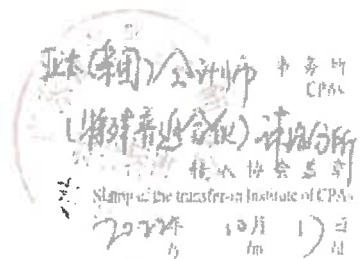 亚太(集团)会计师 事务所
CPAs
(特殊普通合伙)
转入协会盖章
Stamp of the transfer-in Institute of CPAs
2022年 10月 17日
/y /m /d